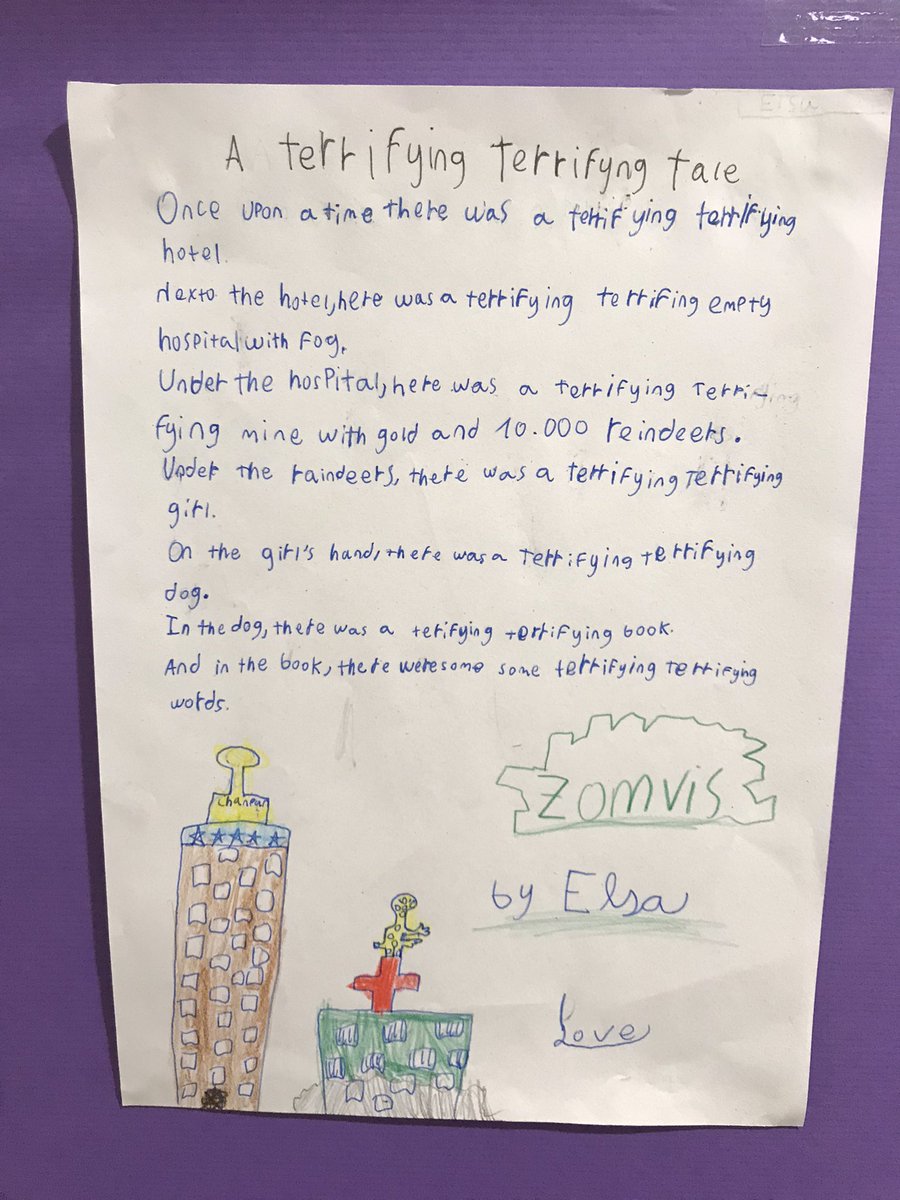 Elsa
A terrifying terrifyng tale
Once upon a time there was a terrifying terrifying
hotel.
Nexto the hotel, here was a terrifying terrifing empty
hospital with Fog.
Under the hospital, here was a terrifying Terri-
fying mine with gold and 10.000 reindeers.
Under the raindeers, there was a terrifying Terrifying
girl.
On the girl's hand, there was a Terrifying terrifying
dog.
In the dog, there was a terifying terrifying book.
And in the book, there were some some terrifying Terrifying
words.
ZOMVIS
by Elsa
Love